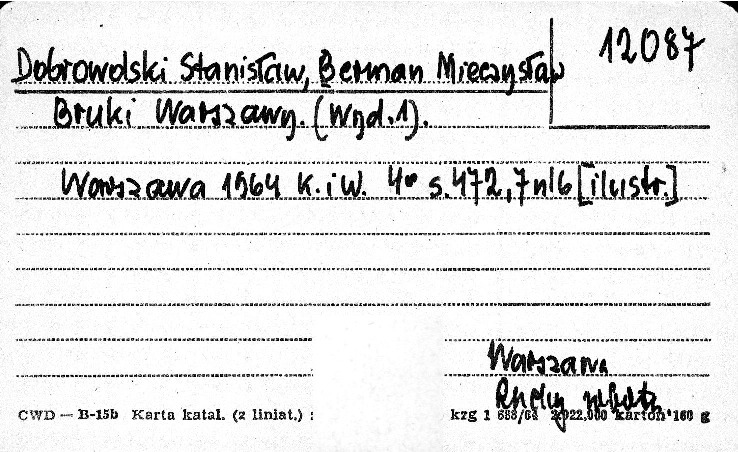 12087
Dobrowolski Stanisław, Berman Mieczysław
Bruki Warszawy. (Wyd.1).
Warszawa 1964 K.iW. 4° s.472,7nlb [ilustr.]
Warszawa
CWD — B-15b Karta katal. (z liniat.) : kzg 1 688/64 2.022.000 karton 160 g